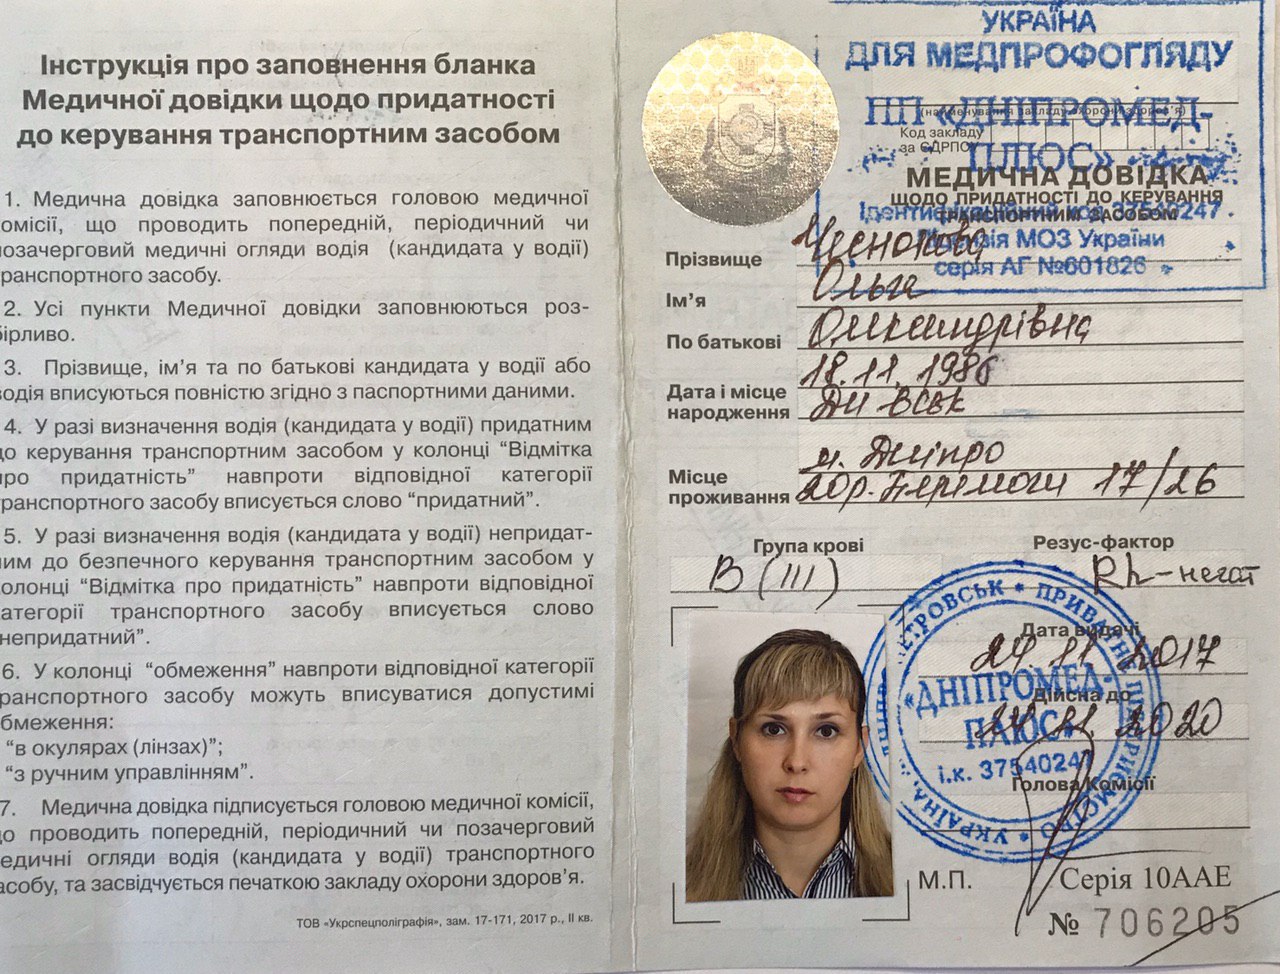 Інструкція про заповнення бланка
Медичної довідки щодо придатності
до керування транспортним засобом
1. Медична довідка заповнюється головою медичної
комісії, що проводить попередній, періодичний чи
позачерговий медичні огляди водія (кандидата у водії)
транспортного засобу.
2. Усі пункти Медичної довідки заповнюються роз-
бірливо.
3. Прізвище, ім’я та по батькові кандидата у водії або
водія вписуються повністю згідно з паспортними даними.
4. У разі визначення водія (кандидата у водії) придатним
до керування транспортним засобом у колонці “Відмітка
про придатність” навпроти відповідної категорії
транспортного засобу вписується слово “придатний”.
5. У разі визначення водія (кандидата у водії) непридат-
ним до безпечного керування транспортним засобом у
колонці “Відмітка про придатність” навпроти відповідної
категорії транспортного засобу вписується слово
“непридатний”.
6. У колонці “обмеження” навпроти відповідної категорії
транспортного засобу можуть вписуватися допустимі
обмеження:
“в окулярах (лінзах)”;
“з ручним управлінням”.
7. Медична довідка підписується головою медичної комісії,
що проводить попередній, періодичний чи позачерговий
медичні огляди водія (кандидата у водії) транспортного
засобу, та засвідчується печаткою закладу охорони здоров’я.
ТОВ «Укрспецполіграфія», зам. 17-171, 2017 р., ІІ кв.
УКРАЇНА
ДЛЯ МЕДПРОФОГЛЯДУ
ПП «ДНІПРОМЕД-
ПЛЮС»
(найменування закладу охорони здоров’я)
Код закладу
за ЄДРПОУ
МЕДИЧНА ДОВІДКА
ЩОДО ПРИДАТНОСТІ ДО КЕРУВАННЯ
ТРАНСПОРТНИМ ЗАСОБОМ
Ідентифікаційний код 37540247
Ліцензія МОЗ України
серія АГ №601826
Прізвище Чеснокова
Ім’я Ольга
По батькові Олександрівна
Дата і місце
народження
18.11.1986
Дн-вськ
Місце
проживання
м. Дніпро
Перемоги 17/26
Група крові Резус-фактор
В (ІІІ) Rh-негат
Дата видачі
24.11.2017
Дійсна до
24.11.2020
Голова Комісії
«ДНІПРОМЕД-
ПЛЮС»
і.к. 37540247
ПЕТРОВСЬК * ПРИВАТНЕ ПІДПРИЄМСТВО * УКРАЇНА,
М.П. Серія 10ААЕ
№ 706205